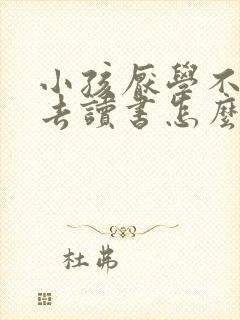 小孩厭學不
去讀書怎麼
杜弗